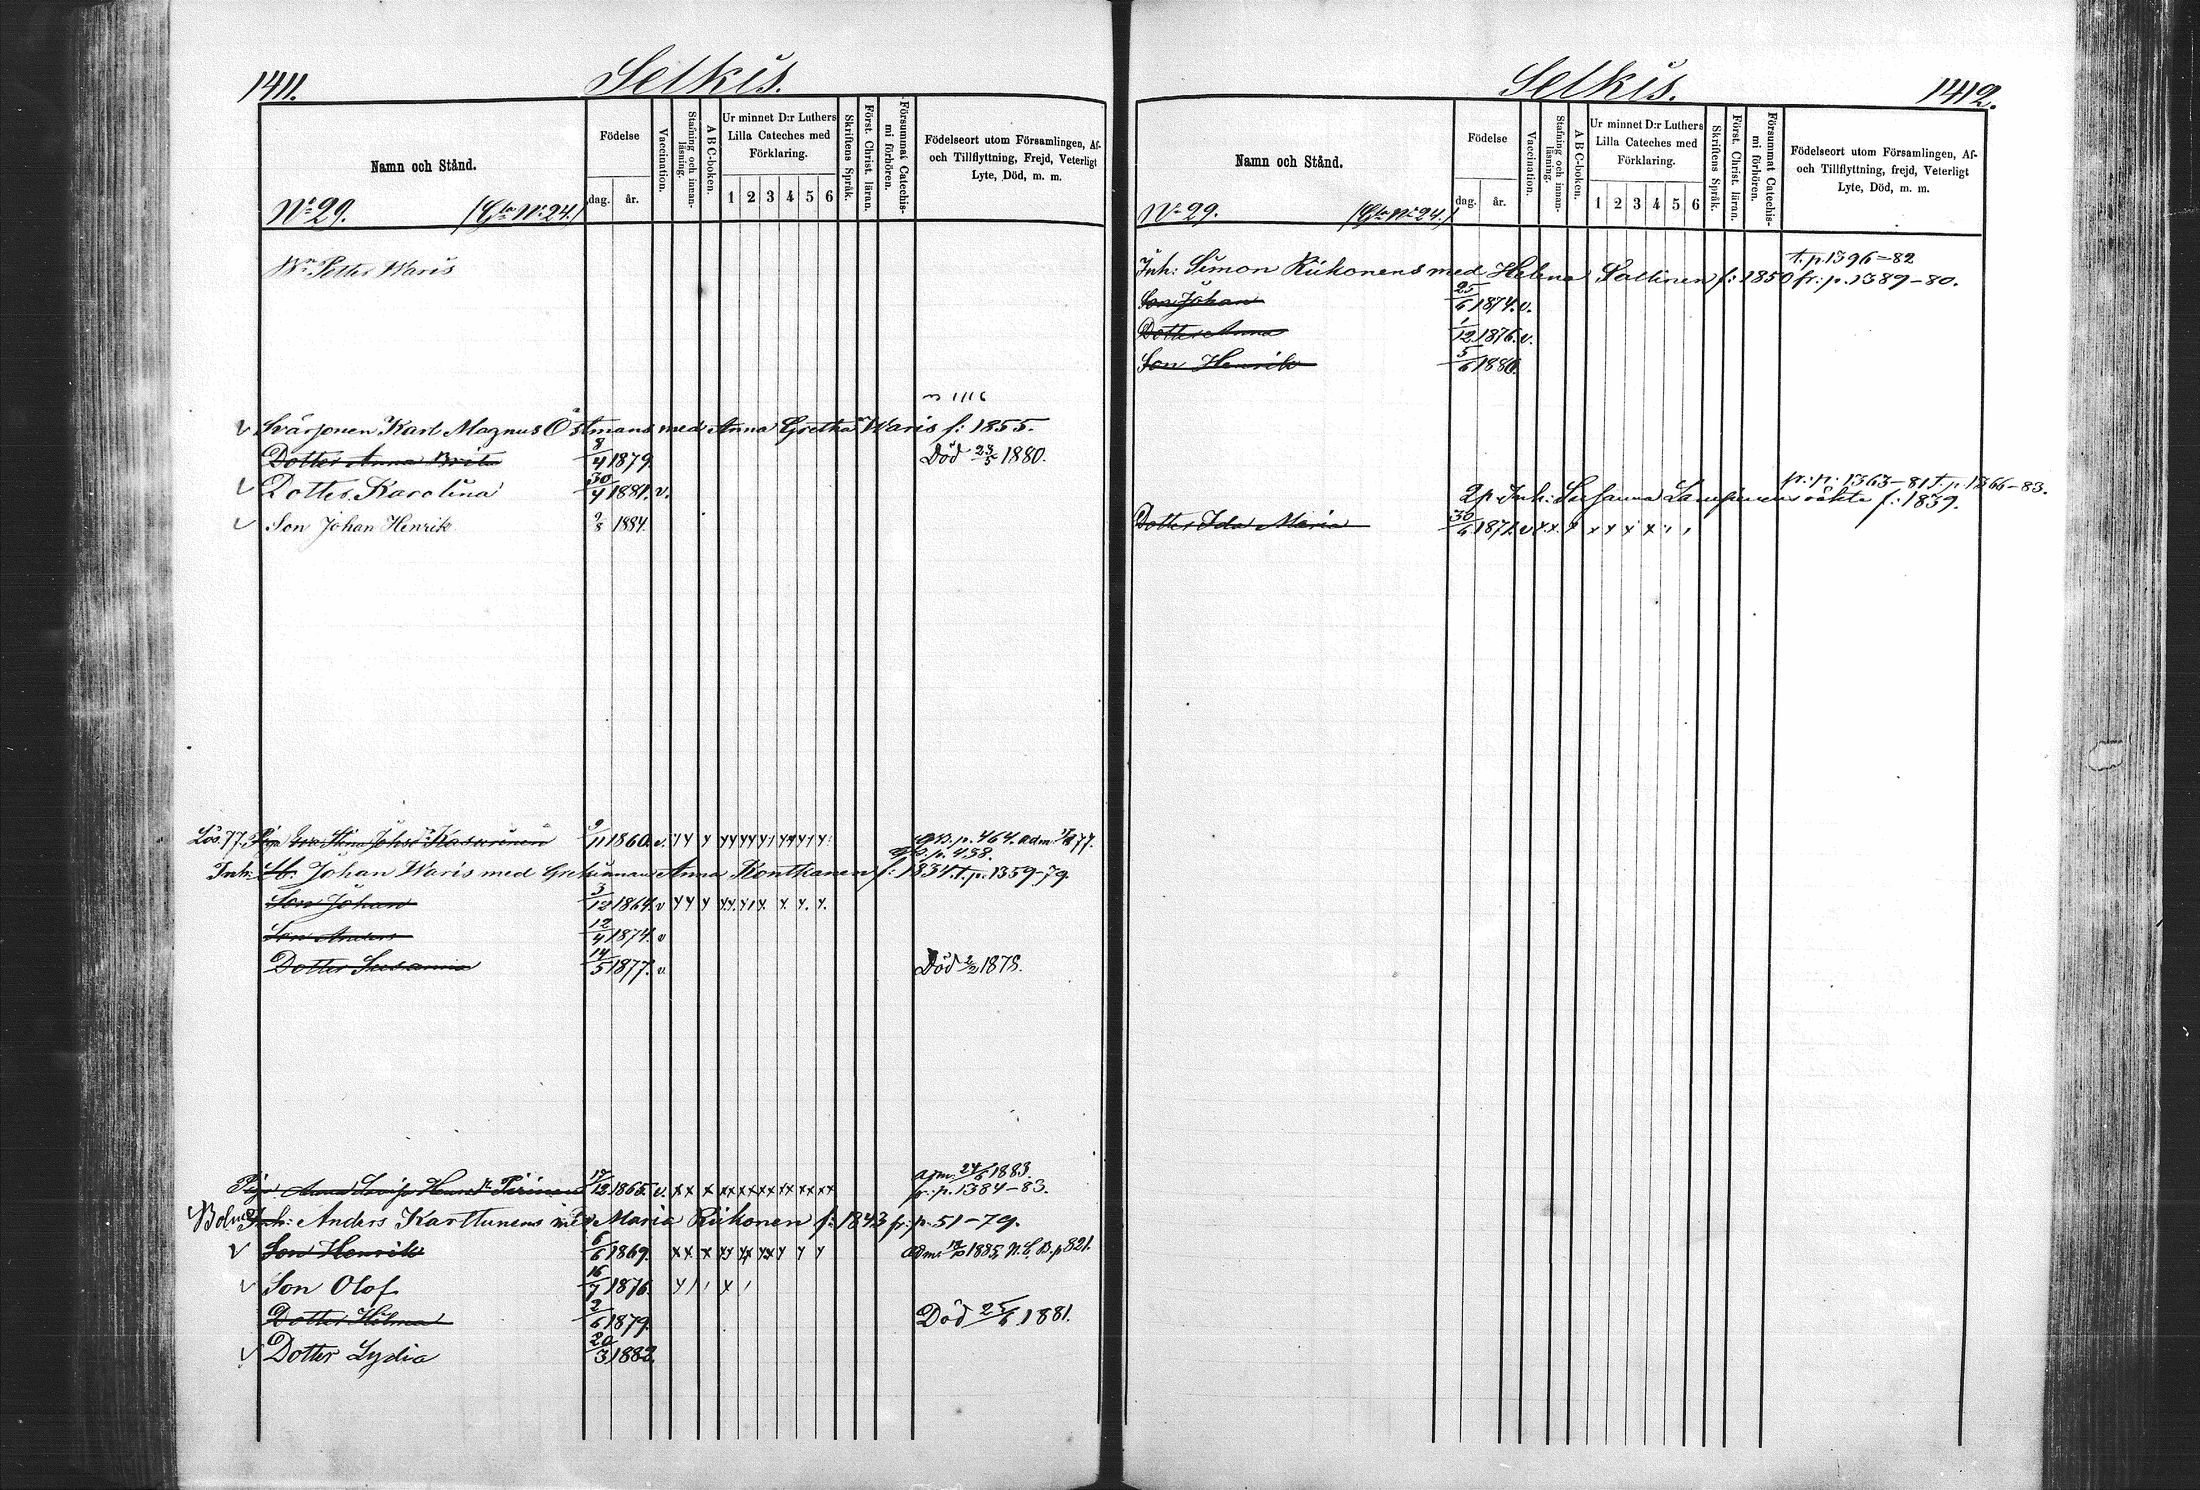 1411.
Selkis.
Namn och Stånd.
Födelse
dag.
år.
Vaccination.
Stafning och innan-
läsning.
ABC-boken.
Ur minnet D:r Luthers
Lilla Cateches med
Förklaring.
1 2 3 4 5 6
Skriftens Språk.
Först. Christ. läran.
Försummat Catechis-
mi förhören.
Födelseort utom Församlingen, Af-
och Tillflyttning, Frejd, Veterligt
Lyte, Död, m. m.
No 29. (Gla No 24.)
Petter Waris
1116
v Svärsonen Karl Magnus Östmans med Anna Gretha Waris f: 1855.
Dotter Anna Brita 8/4 1879. Död 23/5 1880.
v Dotter Karolina 30/4 1881. v.
v Son Johan Henrik 9/8 1884.
Lös. 77. Piga Eva Stina Johsdr Kasurinen 9/11 1860. v. p. 464. adm. 77.
p. 438.
Inh: Johan Waris med Anna Kontkanen f: 1834. t. p. 1359-79.
Son Johan 3/12 1864. v
Son Anders 12/4 1874. v
Dotter Susanna 14/5 1877. v. Död 2/2 1878.
adm. 24/6 1883.
Piga Anna Lovisa Piirinen 1865. v. fr: p. 1384-83.
Inh: Anders Karttunens med Maria Riikonen f: 1843 fr: p. 51-79.
v Son Henrik 6/6 1869. adm. 1885, N. C. B. p 821.
v Son Olof 16/7 1876.
Dotter Hilma 2/6 1879. Död 25/6 1881.
v Dotter Lydia 20/3 1882.
Selkis.
1412.
Namn och Stånd.
Födelse
dag.
år.
Vaccination.
Stafning och innan-
läsning.
ABC-boken.
Ur minnet D:r Luthers
Lilla Cateches med
Förklaring.
1 2 3 4 5 6
Skriftens Språk.
Först. Christ. läran.
Försummat Catechis-
mi förhören.
Födelseort utom Församlingen, Af-
och Tillflyttning, frejd, Veterligt
Lyte, Död, m. m.
No 29. (Gla No 24.)
t. p. 1396-82
Inh: Simon Riikonens med Helena Saltinen f: 1850 fr: p. 1389-80.
Son Johan 25/6 1874. v.
Dotter Anna 1/12 1876. v.
Son Henrik 5/6 1880.
fr: p: 1363-81 t. p. 1366-83.
Inh: Susanna f: 1839.
Dotter Ida Maria 30/6 1872. v